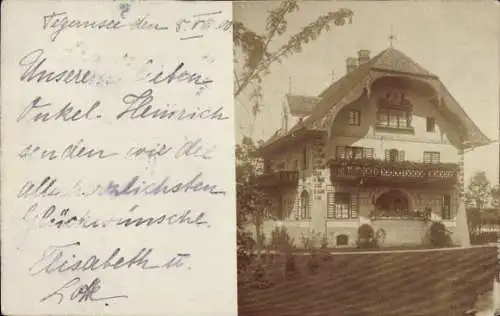 Tegernsee den 8. VII. 10
Unserem lieben
Onkel Heinrich
senden wir die
allerherzlichsten
Glückwünsche.
Elisabeth u.